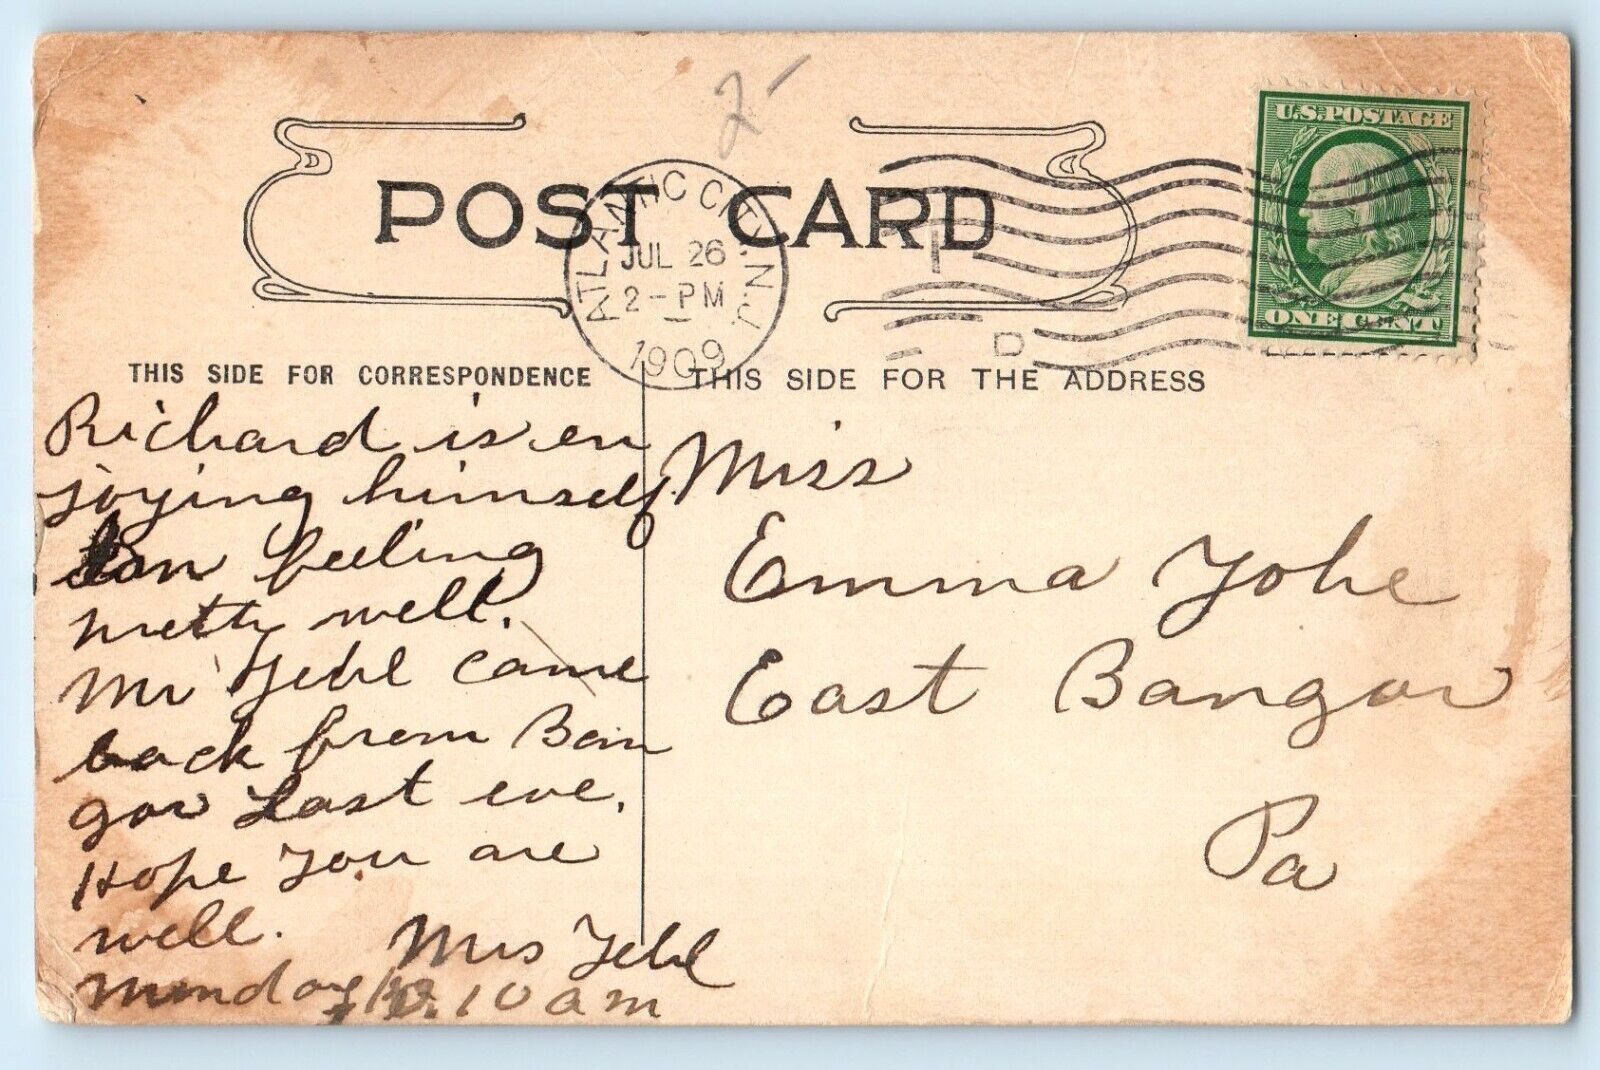 2-
POST CARD
ATLANTIC CITY, N.J.
JUL 26
2-PM
1909
D
U.S. POSTAGE
ONE CENT
THIS SIDE FOR CORRESPONDENCE
THIS SIDE FOR THE ADDRESS
Richard is en
joying himself
feeling
pretty well.
Mr Yehl came
back from Ban
gor Last eve.
Hope you are
well.
Mrs Yehl
Monday 10 am
Miss
Emma Yohe
East Bangor
Pa